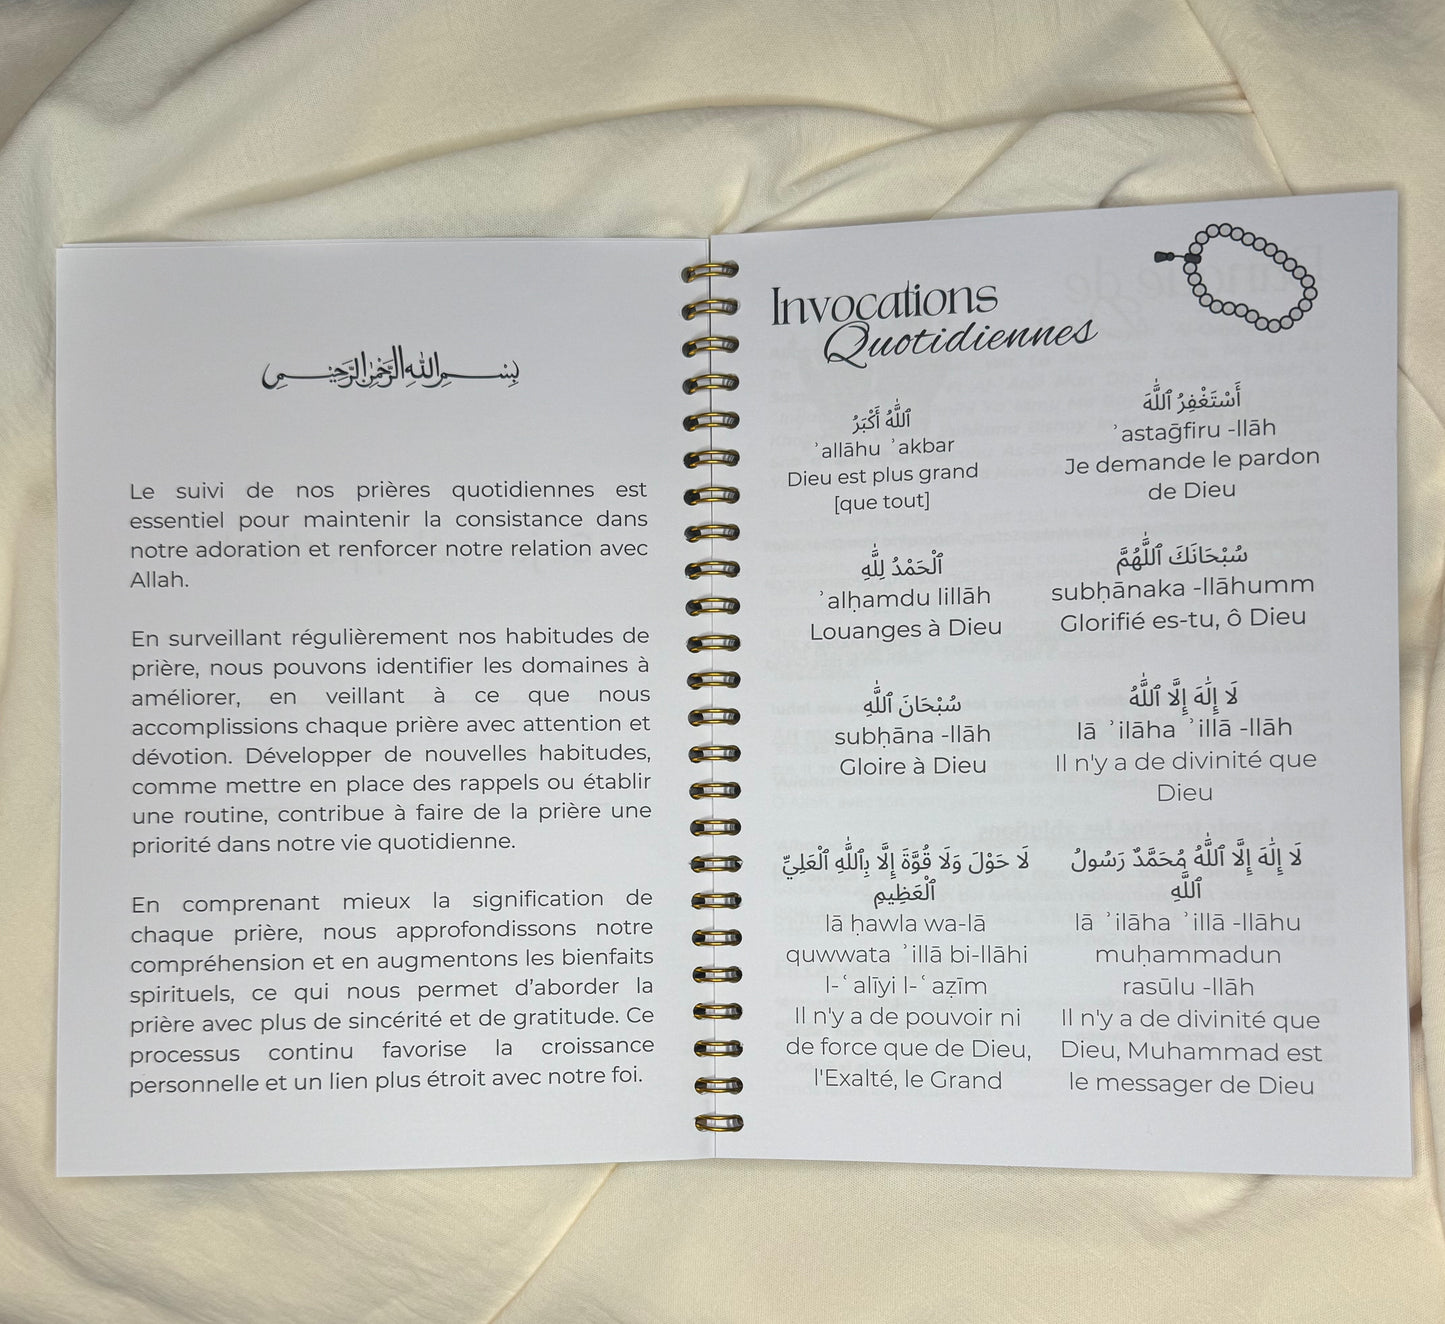 بِسْمِ اللهِ الرَّحْمٰنِ الرَّحِيْمِ
Le suivi de nos prières quotidiennes est
essentiel pour maintenir la consistance dans
notre adoration et renforcer notre relation avec
Allah.
En surveillant régulièrement nos habitudes de
prière, nous pouvons identifier les domaines à
améliorer, en veillant à ce que nous
accomplissions chaque prière avec attention et
dévotion. Développer de nouvelles habitudes,
comme mettre en place des rappels ou établir
une routine, contribue à faire de la prière une
priorité dans notre vie quotidienne.
En comprenant mieux la signification de
chaque prière, nous approfondissons notre
compréhension et en augmentons les bienfaits
spirituels, ce qui nous permet d’aborder la
prière avec plus de sincérité et de gratitude. Ce
processus continu favorise la croissance
personnelle et un lien plus étroit avec notre foi.
Invocations
Quotidiennes
ٱللَّٰهُ أَكْبَرُ
ʾallāhu ʾakbar
Dieu est plus grand
[que tout]
أَسْتَغْفِرُ ٱللَّٰهَ
ʾastaḡfiru -llāh
Je demande le pardon
de Dieu
ٱلْحَمْدُ لِلَّٰهِ
ʾalḥamdu lillāh
Louanges à Dieu
سُبْحَانَكَ ٱللَّٰهُمَّ
subḥānaka -llāhumm
Glorifié es-tu, ô Dieu
سُبْحَانَ ٱللَّٰهِ
subḥāna -llāh
Gloire à Dieu
لَا إِلَٰهَ إِلَّا ٱللَّٰهُ
lā ʾilāha ʾillā -llāh
Il n'y a de divinité que
Dieu
لَا حَوْلَ وَلَا قُوَّةَ إِلَّا بِٱللَّٰهِ ٱلْعَلِيِّ
ٱلْعَظِيمِ
lā ḥawla wa-lā
quwwata ʾillā bi-llāhi
l-ʿalīyi l-ʿaẓīm
Il n'y a de pouvoir ni
de force que de Dieu,
l'Exalté, le Grand
لَا إِلَٰهَ إِلَّا ٱللَّٰهُ مُحَمَّدٌ رَسُولُ
ٱللَّٰهِ
lā ʾilāha ʾillā -llāhu
muḥammadun
rasūlu -llāh
Il n'y a de divinité que
Dieu, Muhammad est
le messager de Dieu